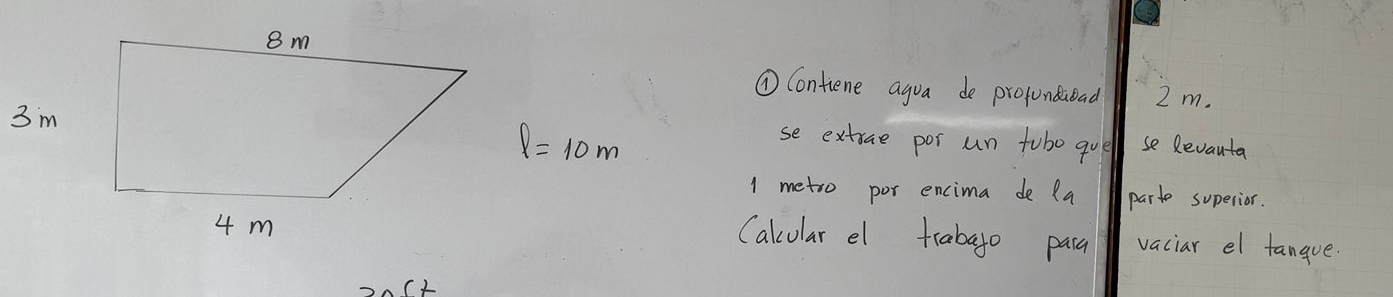 8 m
3 m
l = 10 m
4 m
① Contiene agua de profundidad 2 m.
se extrae por un tubo que se levanta
1 metro por encima de la parte superior.
Calcular el trabajo para vaciar el tanque.